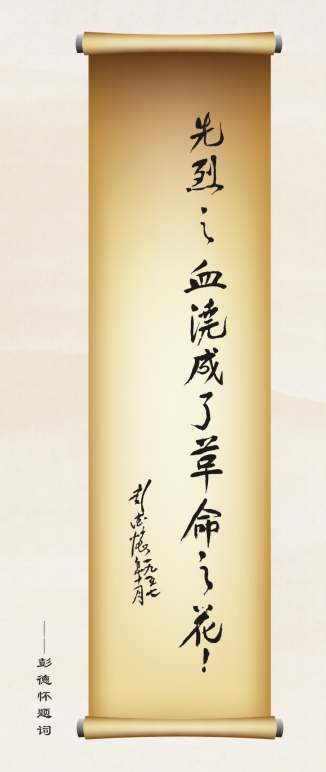 先烈之血浇成了革命之花！
彭德怀
一九五七年十月
——彭德怀题词